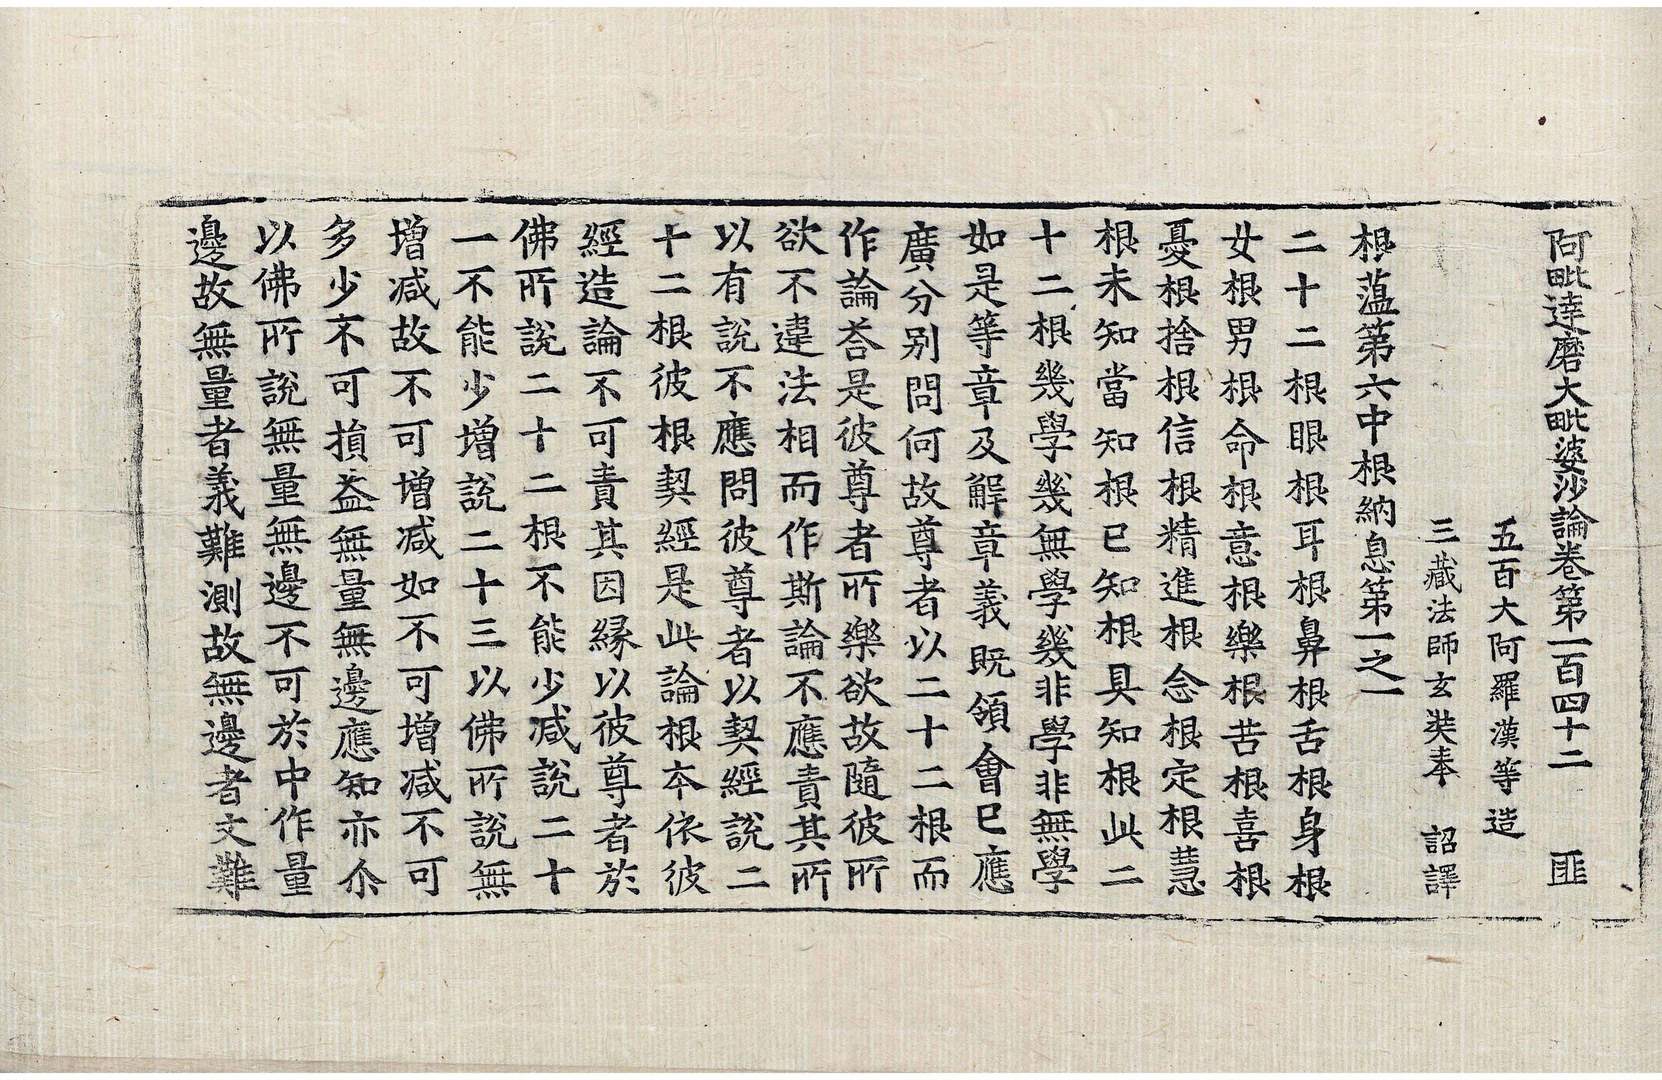 阿毗達磨大毗婆沙論卷第一百四十二 匪
五百大阿羅漢等造
三藏法師玄奘奉 詔譯
根蘊第六中根納息第一之一
二十二根眼根耳根鼻根舌根身根
女根男根命根意根樂根苦根喜根
憂根捨根信根精進根念根定根慧
根未知當知根已知根具知根此二
十二根幾學幾無學幾非學非無學
如是等章及解章義既領會已應
廣分別問何故尊者以二十二根而
作論荅是彼尊者所樂欲故隨彼所
欲不違法相而作斯論不應責其所
以有說不應問彼尊者以契經說二
十二根彼根契經是此論根本依彼
經造論不可責其因緣以彼尊者於
佛所說二十二根不能少減說二十
一不能少增說二十三以佛所說無
增減故不可增減如不可增減不可
多少不可損益無量無邊應知亦尒
以佛所說無量無邊不可於中作量
邊故無量者義難測故無邊者文難